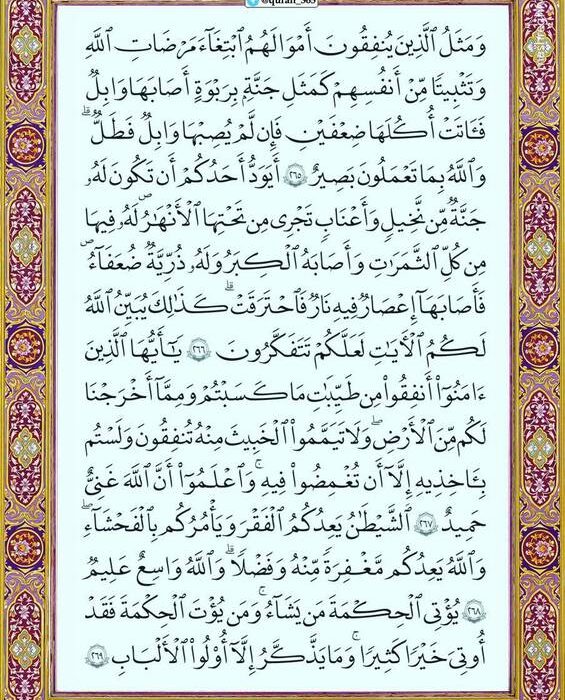 @quran_365
وَمَثَلُ ٱلَّذِينَ يُنفِقُونَ أَمْوَٰلَهُمُ ٱبْتِغَآءَ مَرْضَاتِ ٱللَّهِ
وَتَثْبِيتًا مِّنْ أَنفُسِهِمْ كَمَثَلِ جَنَّةٍۭ بِرَبْوَةٍ أَصَابَهَا وَابِلٌ
فَـَٔاتَتْ أُكُلَهَا ضِعْفَيْنِ فَإِن لَّمْ يُصِبْهَا وَابِلٌ فَطَلٌّ ۗ
وَٱللَّهُ بِمَا تَعْمَلُونَ بَصِيرٌ ٢٦٥ أَيَوَدُّ أَحَدُكُمْ أَن تَكُونَ لَهُۥ
جَنَّةٌ مِّن نَّخِيلٍ وَأَعْنَابٍ تَجْرِى مِن تَحْتِهَا ٱلْأَنْهَٰرُ لَهُۥ فِيهَا
مِن كُلِّ ٱلثَّمَرَٰتِ وَأَصَابَهُ ٱلْكِبَرُ وَلَهُۥ ذُرِّيَّةٌ ضُعَفَآءُ
فَأَصَابَهَآ إِعْصَارٌ فِيهِ نَارٌ فَٱحْتَرَقَتْ ۗ كَذَٰلِكَ يُبَيِّنُ ٱللَّهُ
لَكُمُ ٱلْـَٔايَٰتِ لَعَلَّكُمْ تَتَفَكَّرُونَ ٢٦٦ يَٰٓأَيُّهَا ٱلَّذِينَ
ءَامَنُوٓا۟ أَنفِقُوا۟ مِن طَيِّبَٰتِ مَا كَسَبْتُمْ وَمِمَّآ أَخْرَجْنَا
لَكُم مِّنَ ٱلْأَرْضِ ۖ وَلَا تَيَمَّمُوا۟ ٱلْخَبِيثَ مِنْهُ تُنفِقُونَ وَلَسْتُم
بِـَٔاخِذِيهِ إِلَّآ أَن تُغْمِضُوا۟ فِيهِ ۚ وَٱعْلَمُوٓا۟ أَنَّ ٱللَّهَ غَنِىٌّ
حَمِيدٌ ٢٦٧ ٱلشَّيْطَٰنُ يَعِدُكُمُ ٱلْفَقْرَ وَيَأْمُرُكُم بِٱلْفَحْشَآءِ ۖ
وَٱللَّهُ يَعِدُكُم مَّغْفِرَةً مِّنْهُ وَفَضْلًا ۗ وَٱللَّهُ وَٰسِعٌ عَلِيمٌ
٢٦٨ يُؤْتِى ٱلْحِكْمَةَ مَن يَشَآءُ ۚ وَمَن يُؤْتَ ٱلْحِكْمَةَ فَقَدْ
أُوتِىَ خَيْرًا كَثِيرًا ۗ وَمَا يَذَّكَّرُ إِلَّآ أُو۟لُوا۟ ٱلْأَلْبَٰبِ ٢٦٩